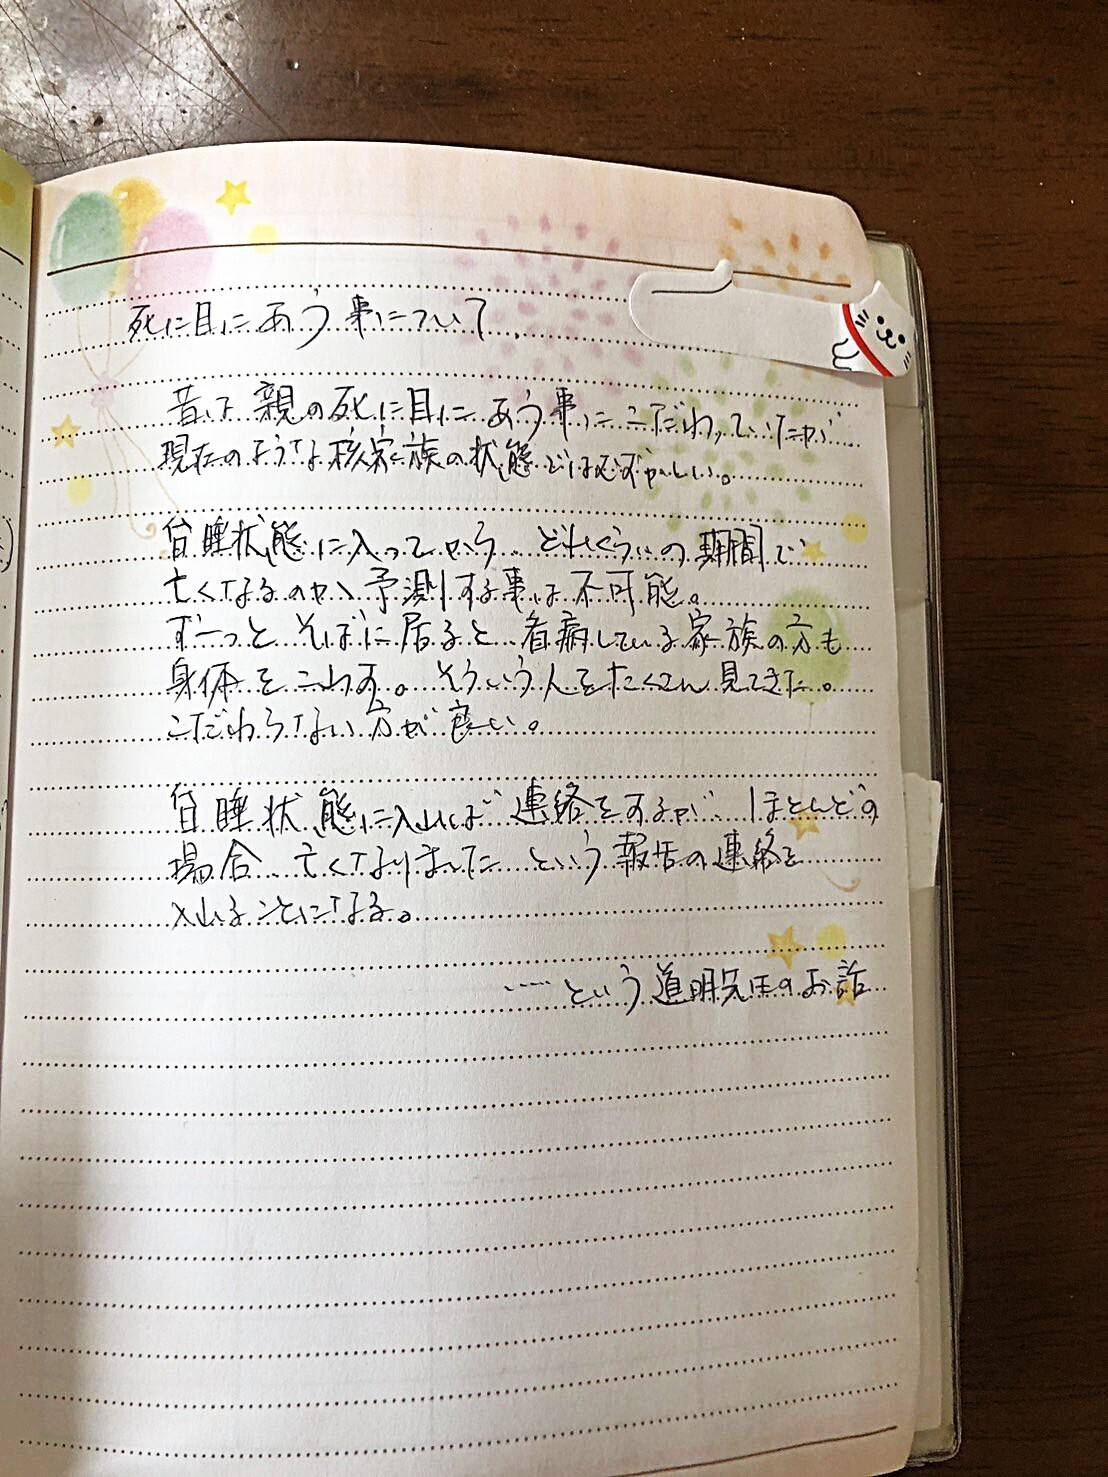 死に目にあう事について
昔は親の死に目にあう事にこだわっていたが
現在のような核家族の状態ではむずかしい。
昏睡状態に入ってから どれくらいの期間で
亡くなるのか、予測する事は不可能。
ずーっと そばに居ると 看病している家族の方も
身体をこわす。そういう人をたくさん見てきた。
こだわらない方が良い。
昏睡状態に入れば 連絡をするが ほとんどの
場合 亡くなりました という報告の連絡を
入れることになる。
……という道明先生のお話